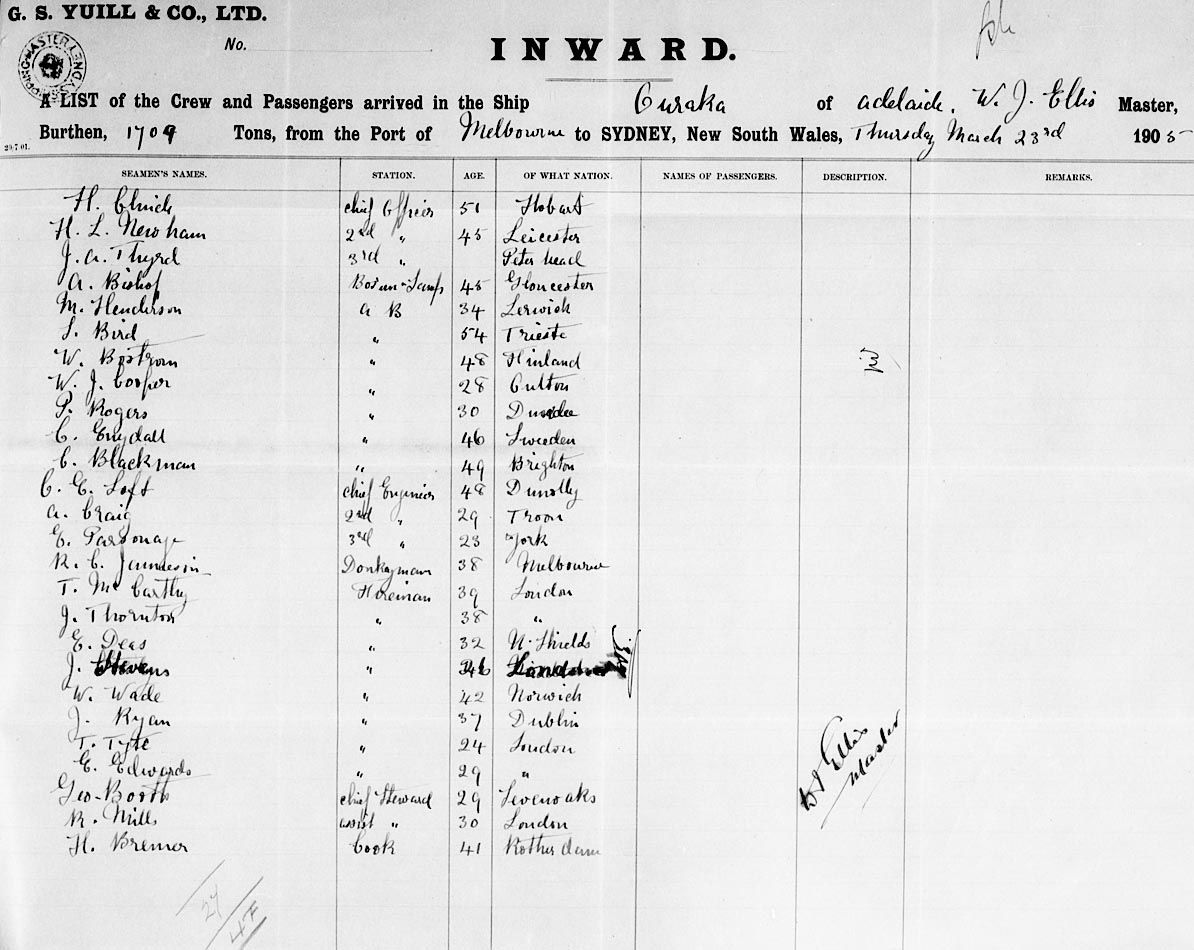 G. S. YUILL & CO., LTD.
No.
INWARD.
A LIST of the Crew and Passengers arrived in the Ship Ouraka of adelaide, W. J. Ellis Master,
Burthen, 1709 Tons, from the Port of Melbourne to SYDNEY, New South Wales, Thursday March 23rd 1905
29/7/01.
SEAMEN'S NAMES. STATION. AGE. OF WHAT NATION. NAMES OF PASSENGERS. DESCRIPTION. REMARKS.
H. chief Officer 51 Hobart
H. L. Newham 2nd " 45 Leicester
J. A. Thyrd 3rd " Peter head
A. Bishop Bosun-Lamps 45 Gloucester
M. Henderson A B 34 Lerwick
S. Bird " 54 Trieste
W. Bostrom " 48 Finland
W. J. Cooper " 28
P. Rogers " 30 Dundee
C. Engdall " 46 Sweden
C. Blackman " 49 Brighton
C. E. Loft chief Engineer 48 Dunolly
A. Craig 2nd " 29 Troon
E. Parsonage 3rd " 23 York
R. C. Jamieson Donkeyman 38 Melbourne
T. McCarthy Fireman 39 London
J. Thornton " 38 "
E. Deas " 32 N. Shields
J. Stevens " London
W. Wade " 42 Norwich
J. Ryan " 37 Dublin
T. Tyte " 24 London
E. Edwards " 29 "
Geo Booth chief Steward 29 Sevenoaks
R. Mills assist " 30 London
H. Bremer Cook 41 Rotherdam
W J Ellis
Master
27